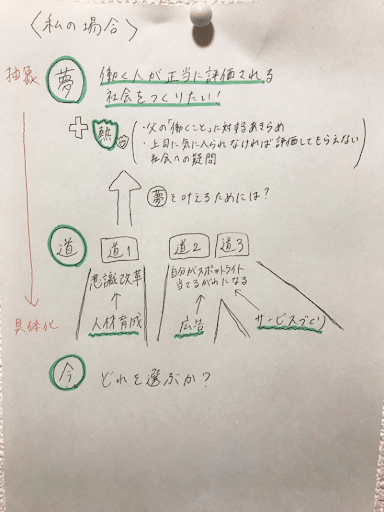 〈私の場合〉
抽象
夢
働く人が正当に評価される
社会をつくりたい!
熱
・父の「働くこと」に対するあきらめ
・上司に気に入られなければ評価してもらえない
社会への疑問
夢を叶えるためには?
道
道1
道2
道3
意識改革
自分がスポットライト
当てるがわになる
具体化
人材育成
広告
サービスづくり
今
どれを選ぶか?